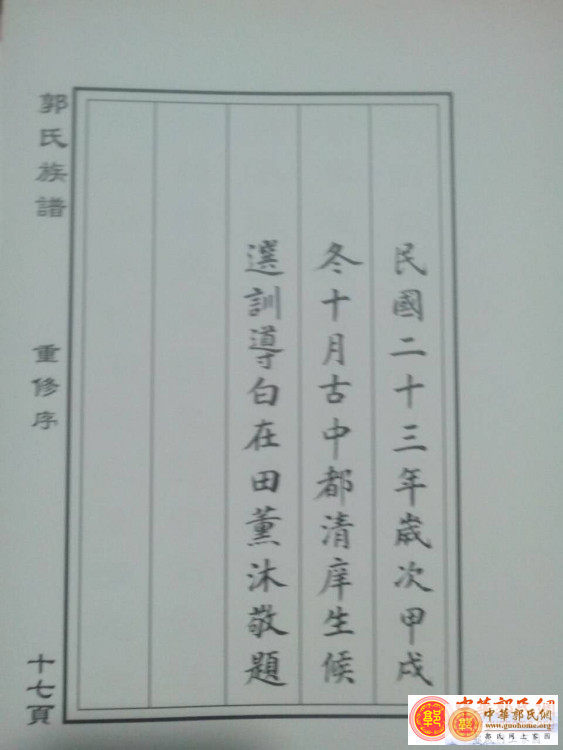 民國二十三年歲次甲戌
冬十月古中都清庠生候
選訓導白在田薰沐敬題
郭氏族譜
重修序
十七頁
中華郭氏網
www.guohome.org
郭氏網上家園